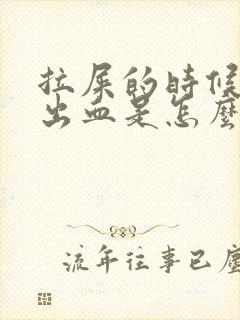 拉屎的時候
出血是怎麼
流年往事已塵